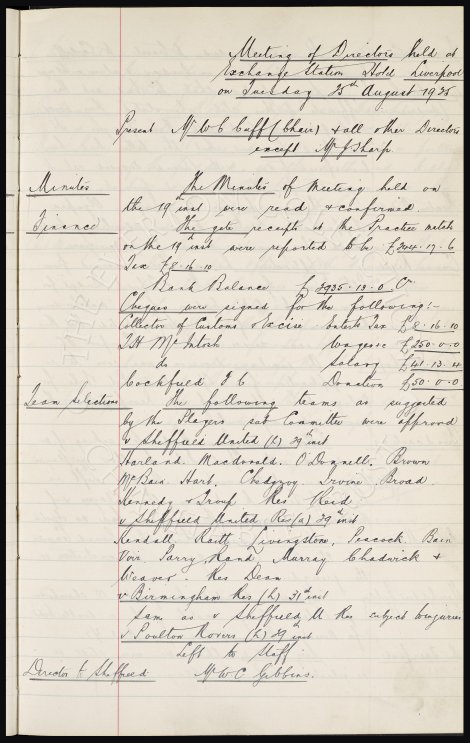 Meeting of Directors held at
Exchange Station Hotel Liverpool
on Tuesday 25th August 1925
Present Mr W C Cuff (Chair) & all other Directors
except Mr J Sharp.
Minutes The Minutes of Meeting held on
the 19th inst were read & confirmed
Finance The gate receipts at the Practice match
on the 19th inst were reported to be £344.17.6
Tax £8.16.10
Bank Balance £3935.13.0 Cr
Cheques were signed for the following:-
Collector of Customs & Excise Enterts Tax £8.16.10
T H McIntosh Wages £250.0.0
do Salary £41.13.4
Cockfield F C Donation £50.0.0
Team Selections The following teams as suggested
by the Players sub Committee were approved
v Sheffield United (h) 29th inst
Harland. Macdonald. O'Donnell. Brown
McBain Hart. Chedgzoy Irvine Broad
Kennedy & Troup Res Reid
v Sheffield United Res (a) 29th inst
Kendall Raitt Livingstone, Peacock Bain
Virr Parry Rand Murray Chadwick &
Weaver. Res Dean
v Birmingham Res (h) 31st inst
Same as v Sheffield U Res subject to injuries
v Poulton Rovers (h) 29th inst
Left to Staff.
Director to Sheffield Mr W C Gibbins.